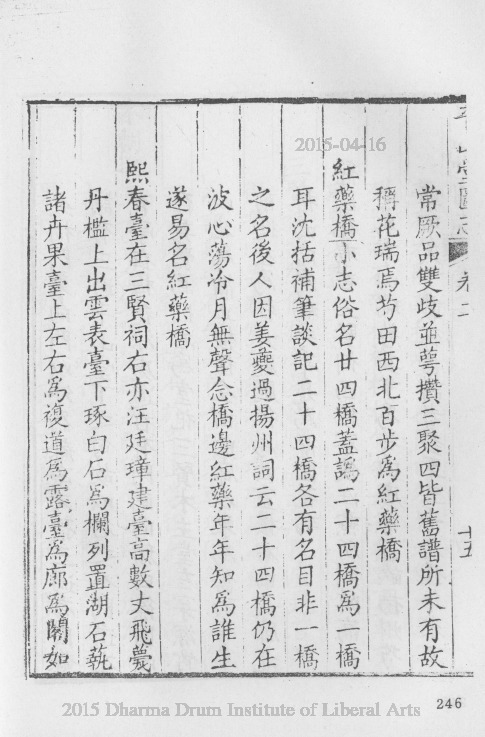 2015-04-16
平山堂圖志 卷二 十五
常厥品雙歧並萼攢三聚四皆舊譜所未有故
稱花瑞焉芍田西北百步爲紅藥橋
紅藥橋小志俗名廿四橋蓋譌二十四橋爲一橋
耳沈括補筆談記二十四橋各有名目非一橋
之名後人因姜夔過揚州詞云二十四橋仍在
波心蕩冷月無聲念橋邊紅藥年年知爲誰生
遂易名紅藥橋
熙春臺在三賢祠右亦汪廷璋建臺高數丈飛甍
丹檻上出雲表臺下琢白石爲欄列置湖石蓺
諸卉果臺上左右爲複道爲露臺爲廊爲閣如
246
2015 Dharma Drum Institute of Liberal Arts